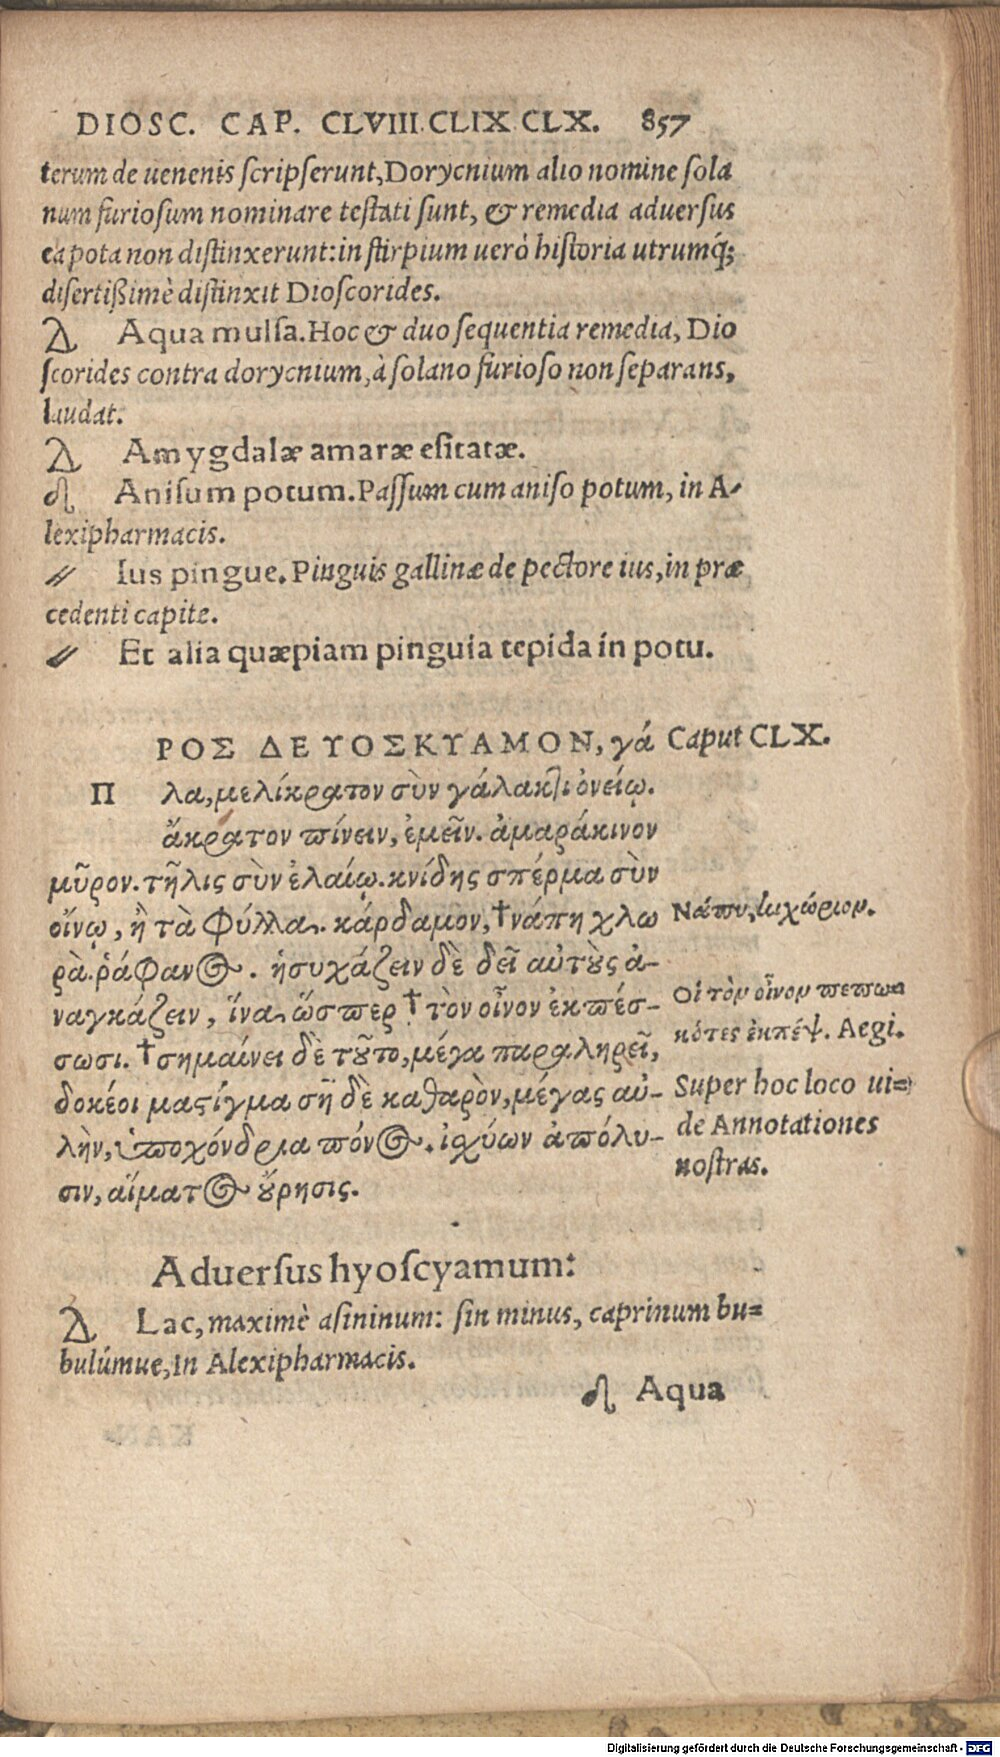 DIOSC. CAP. CLVIII. CLIX CLX. 857
terum de uenenis scripserunt, Dorycnium alio nomine sola
num furiosum nominare testati sunt, & remedia aduersus
ea pota non distinxerunt: in stirpium uerò historia utrumq́;
disertißimè distinxit Dioscorides.
Aqua mulsa. Hoc & duo sequentia remedia, Dio
scorides contra dorycnium, à solano furioso non separans,
laudat.
Amygdalæ amaræ esitatæ.
Anisum potum. Passum cum aniso potum, in A-
lexipharmacis.
Ius pingue. Pinguis gallinæ de pectore ius, in præ
cedenti capite.
Et alia quæpiam pinguia tepida in potu.
ΡΟΣ ΔΕ ΥΟΣΚΥΑΜΟΝ, γά Caput CLX.
Π λα, μελίκρατον σὺν γάλακτι ὀνείῳ.
ἄκρατον πίνειν, ἐμεῖν. ἀμαράκινον
μῦρον. τῆλις σὺν ἐλαίῳ. κνίδης σπέρμα σὺν
οἴνῳ, ἢ τὰ φύλλα. κάρδαμον, †νάπη χλω
Νάπυ, κιχώριον.
ρὰ. ῥάφανος. ἡσυχάζειν δὲ δεῖ αὐτοὺς ἀ-
ναγκάζειν, ἵνα ὥσπερ †τὸν οἶνον ἐκπέσ-
Οἱ τὸν οἶνον πεπω-
κότες ἐκπέψ. Aegi.
σωσι. †σημαίνει δὲ τοῦτο, μέγα παραληρεῖ,
δοκέοι μαστίγμα σῇ δὲ καθαρὸν, μέγας αὐ-
Super hoc loco ui=
de Annotationes
nostras.
λὴν, ὑποχόνδρια πόνος. ἰσχύων ἀπόλυ-
σιν, αἵματος οὔρησις.
Aduersus hyoscyamum:
Lac, maximè asininum: sin minus, caprinum bu=
bulúmue, In Alexipharmacis.
Aqua
Digitalisierung gefördert durch die Deutsche Forschungsgemeinschaft - DFG